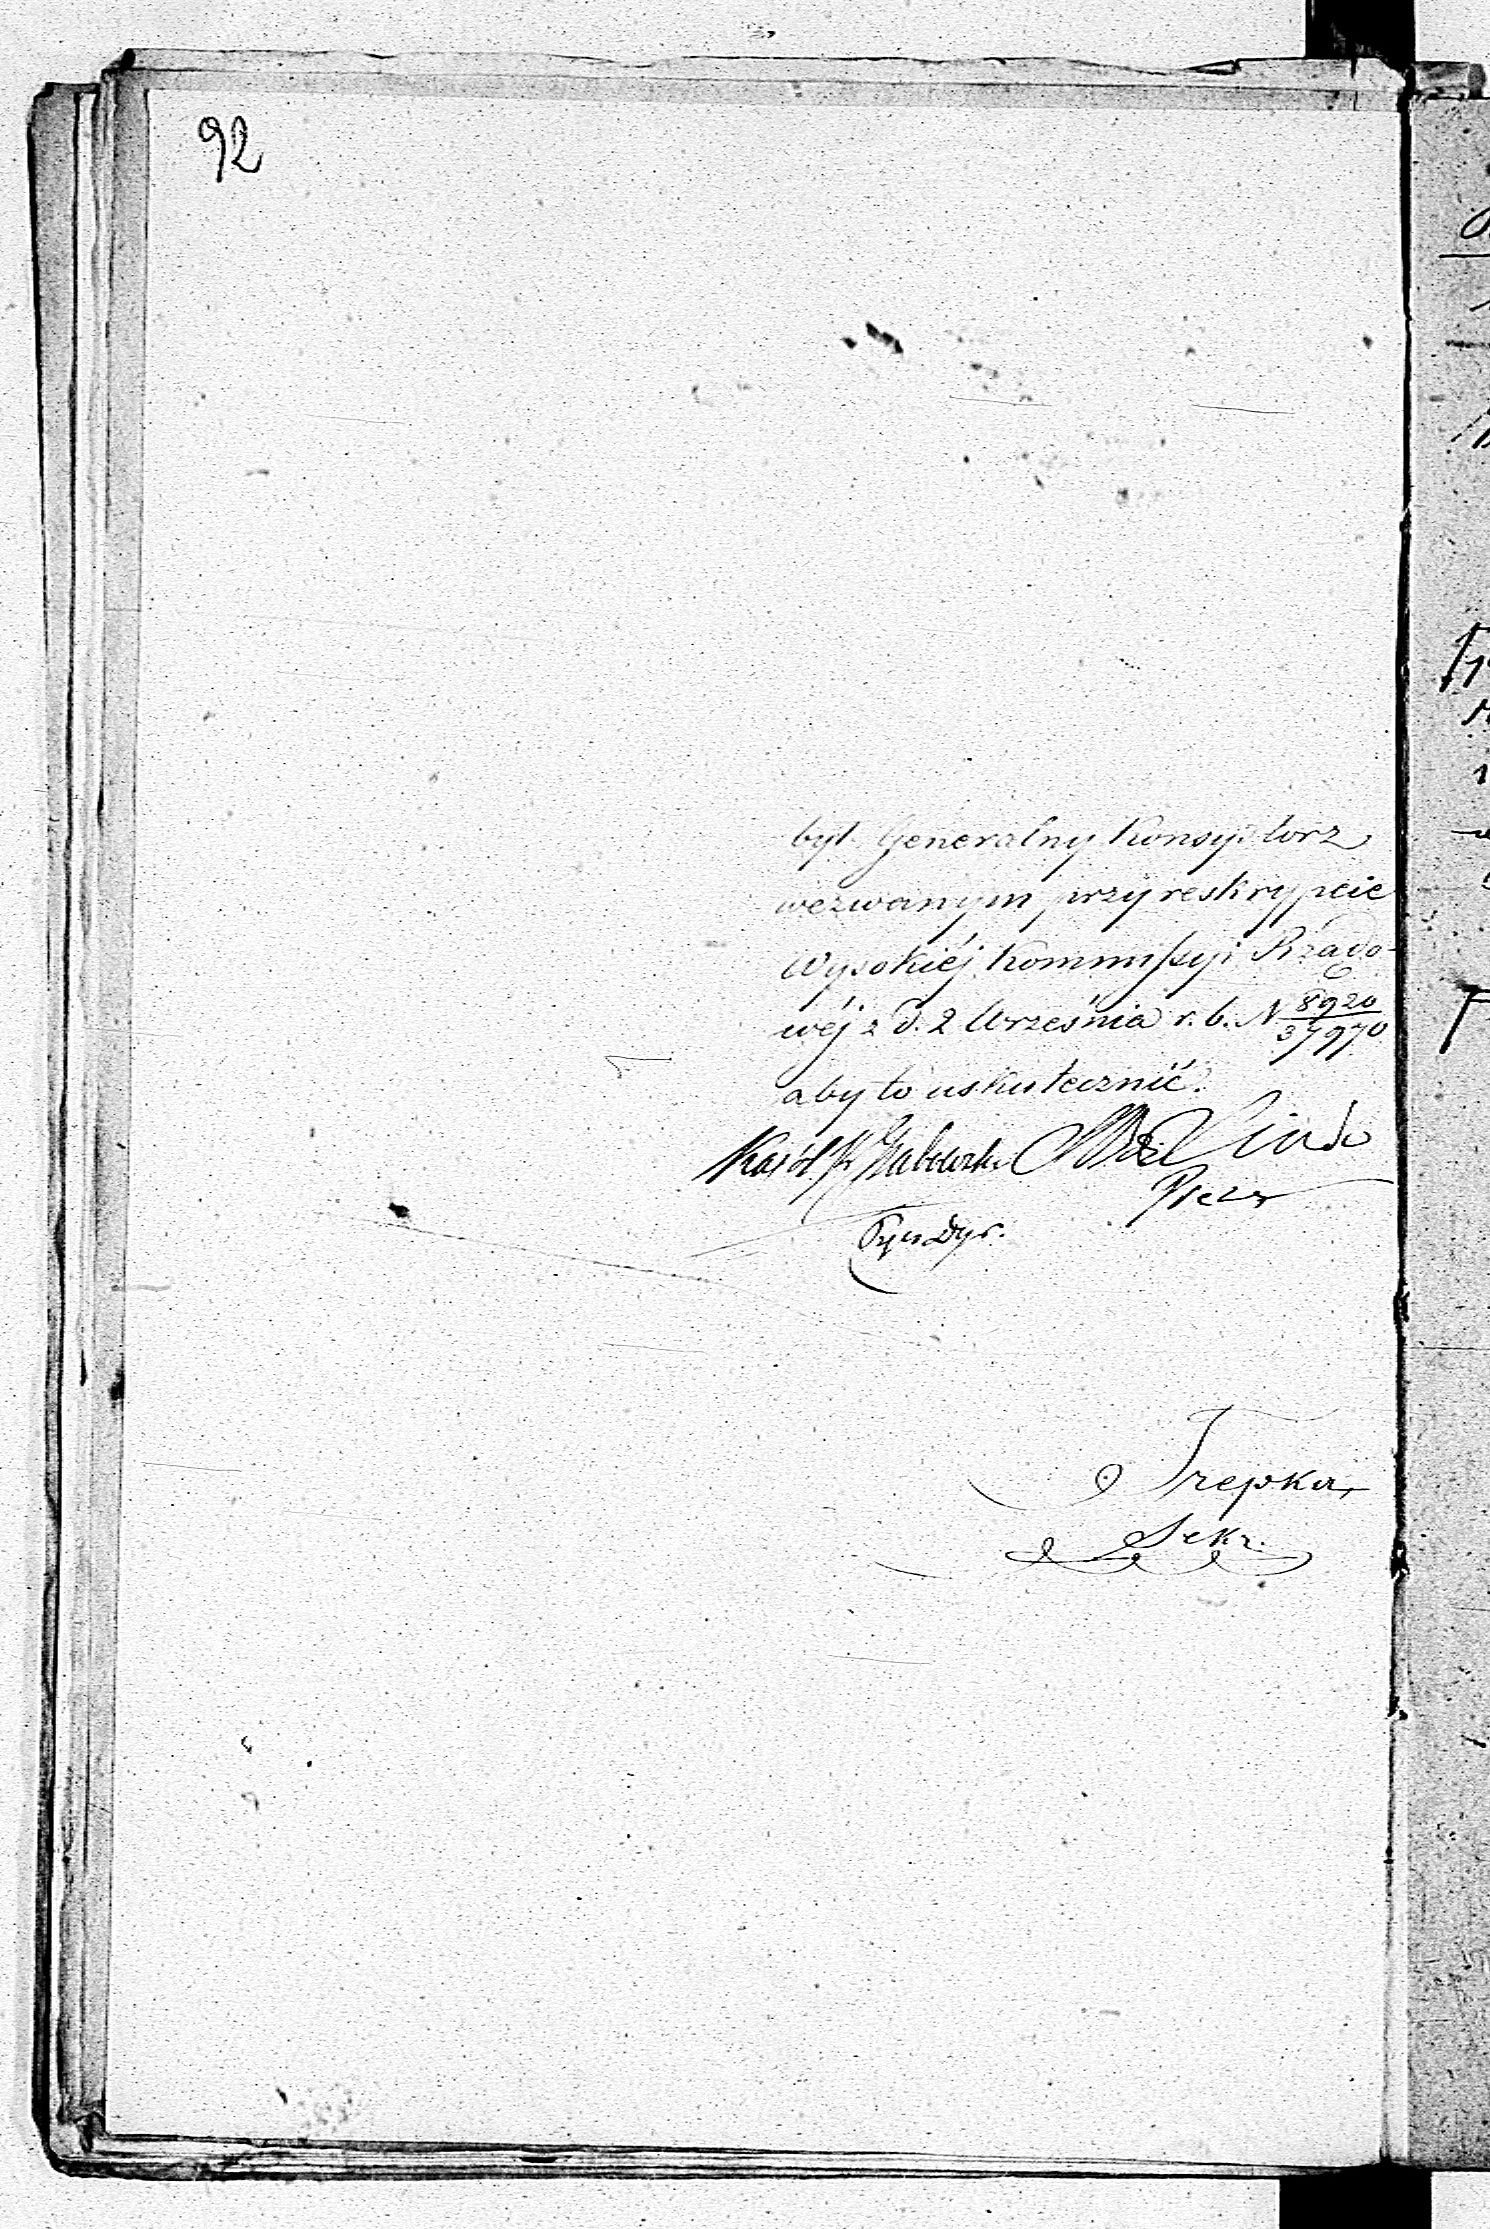 92
był Generalny Konsystorz
wezwanym przy reskrypcie
Wysokiéj Kommissyi Rządo-
wéj z d. 2 Września r. b. N 8920/37970
aby to uskutecznić.
Karól
Trepka
Sekr.